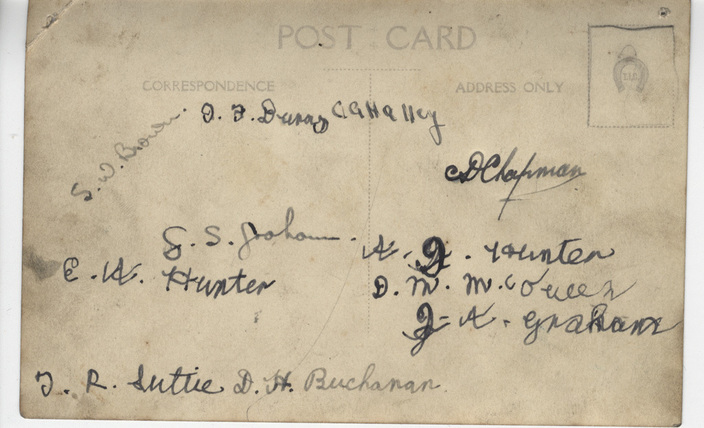 POST CARD
CORRESPONDENCE
ADDRESS ONLY
S. W. Brown.
J. F. C A Halley
C D Chapman
G. S. Graham.
A. J. Hunter
E. A. Hunter
D. M. McQueen
J. A. Graham
T. R. Suttie D. H. Buchanan.